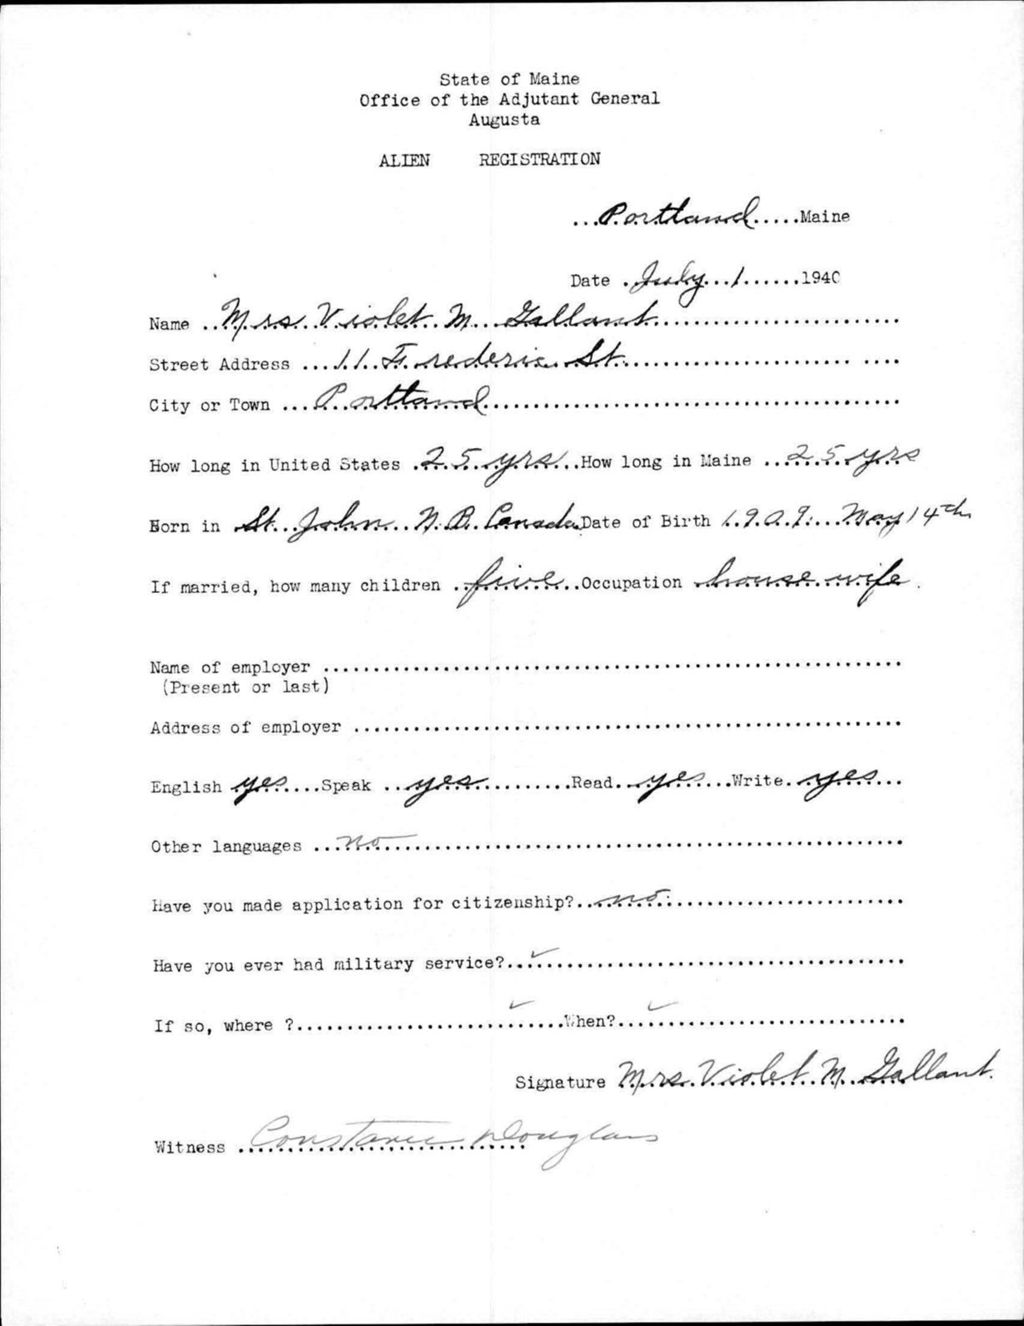 State of Maine
Office of the Adjutant General
Augusta
ALIEN REGISTRATION
...Portland.....Maine
Date .July...1......1940
Name ..Mrs..Violet..M...Gallant..............................
Street Address ....11..Frederic..St............................. ....
City or Town ...Portland..................................................
How long in United States .25..yrs...How long in Maine ...25.yrs
Born in .St..John...N.B. Canada.Date of Birth 1909...May 14th
If married, how many children ..five...Occupation .house.wife.
Name of employer ...............................................................
(Present or last)
Address of employer ...........................................................
English yes....Speak ..yes..........Read..yes...Write.yes...
Other languages ...no.........................................................
Have you made application for citizenship?..no............................
Have you ever had military service?...✓.......................................
If so, where ?.......................✓......When?....✓..........................
Signature Mrs.Violet.M.Gallant.
Witness .Constance Douglass